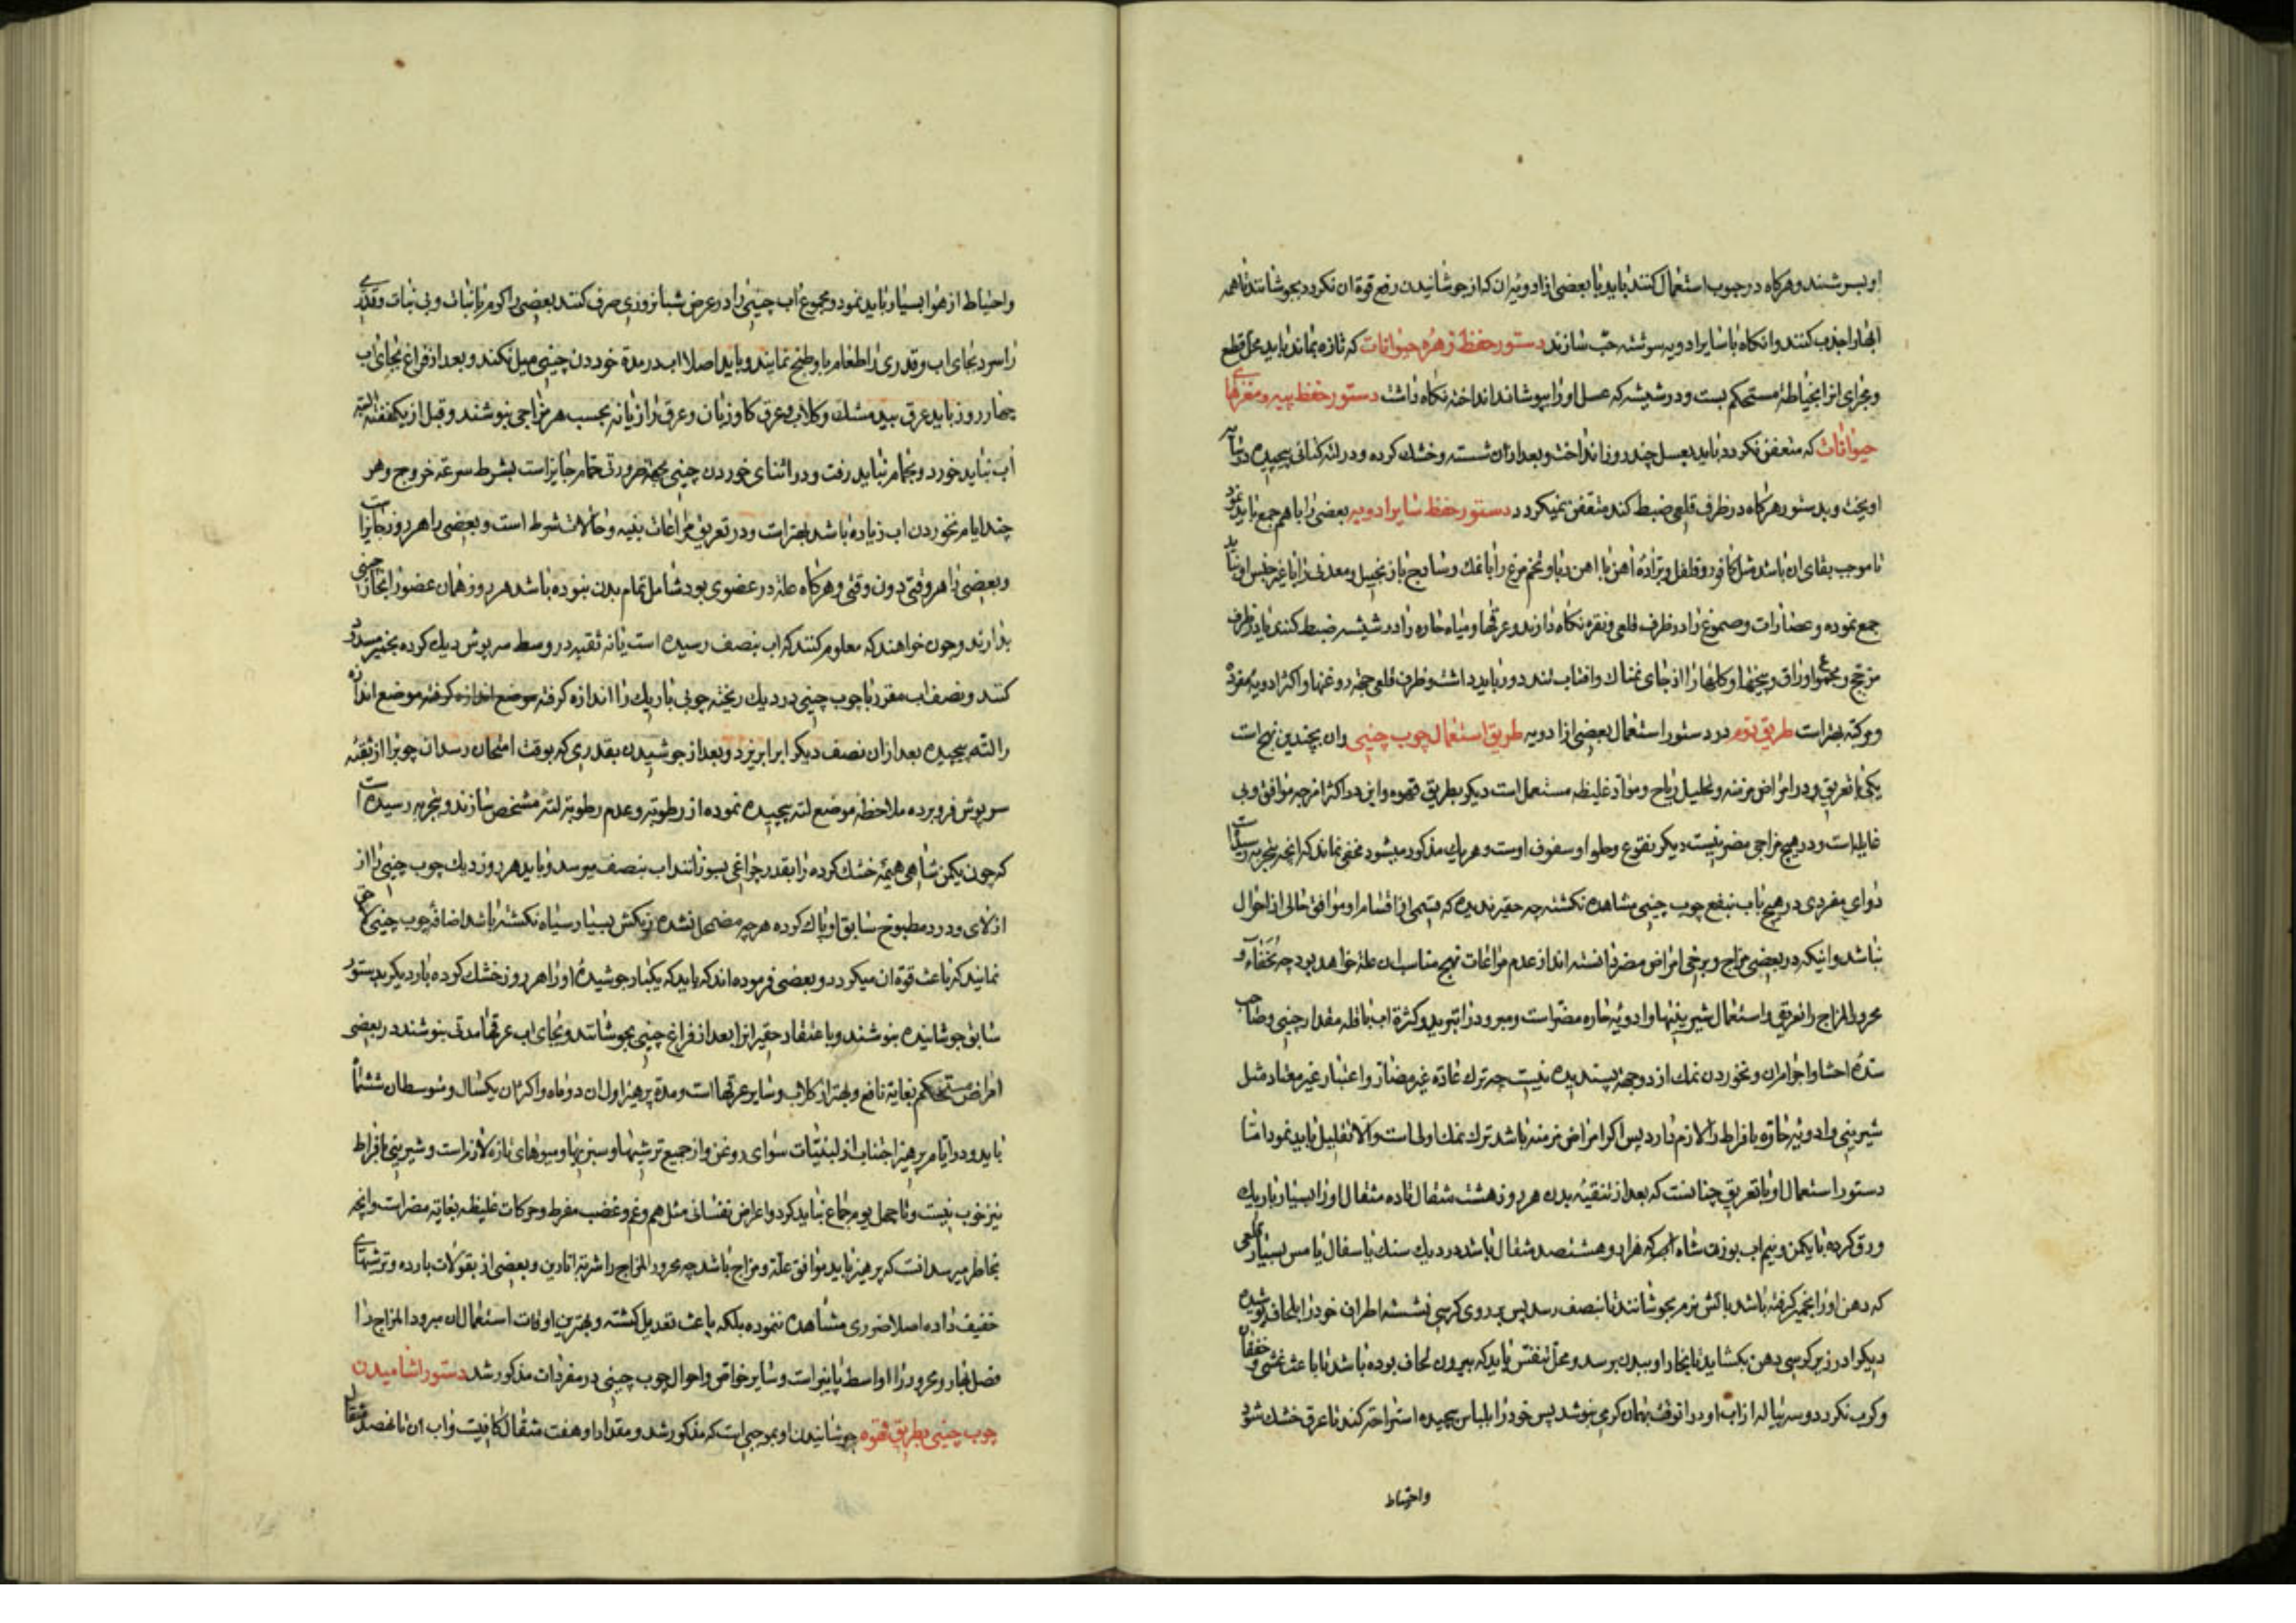 او بسرشند و هرکاه در حبوب استعمال کنند باید با بعضی از ادویه ان که از جوشانیدن رفع قوة ان نکردد بجوشانند تا همه
ابها را جذب کنند و انکاه با سایر ادویه سرشته حب سازند دستور حفظ زهره حیوانات که تازه بماند باید محل قطع
و مجرای انرا بخیاطه مستحکم بست و در شیشه که عسل او را بپوشاند انداخته نکاه داشت دستور حفظ پیه و مغزهای
حیوانات که متعفن نکردد باید بعسل چند روز انداخت و بعد از ان شسته و خشک کرده و در لته کتانی پیچیده در سایه
اویخت و بدستور هرکاه در ظرف قلعی ضبط کند متعفن نمیکردد دستور حفظ سایر ادویه بعضی را با هم جمع باید نمود
تا موجب بقای ان باشد مثل کافور و فلفل و براده اهن با اهن ربا و تخم مرغ را با نمک و سادج با زنجبیل و معدنی را با غیر جنس او نباید
جمع نموده و عصارات و صموغ را در ظرف قلعی و نقره نکاه دارند و عرقها و میاه حاره را در شیشه ضبط کنند باید ظرف
مزجج و مجموع اوراق و بیخها و کلها را از جای نمناک و افتاب تند دور باید داشت و ظرف قلعی جهة روغنها و اکثر ادویه مفرده
و مرکبه بهتر است طریق دوم در دستور استعمال بعضی از ادویه طریق استعمال چوب چینی و ان بچندین نهج است
یکی با تعریق و در امراض مزمنه و تحلیل ریاح و مواد غلیظه مستعمل است دیکر بطریق قهوه و این در اکثر امزجه موافق و بی
غایله است و در هیچ مزاجی مضر نیست دیکر بنقوع و حلوا و سفوف اوست و هر یک مذکور میشود مخفی نماند که انچه بتجربه رسیده است
دوای مفردی در هیچ باب بنفع چوب چینی مشاهده نکشته چه حقیر ندیده که قسمی از اقسام او موافق حالی از احوال
نباشد و انیکه در بعضی مزاج و برخی امراض مضر دانسته اند از عدم مراعات نهج مناسب ان علة خواهد بود چه نحفاء و
محرور المزاج را تعریق و استعمال شیرینیها و ادویه حاره مضر است و مبرود را تبرید و کثرة اب با قله مقدار چینی و صاحب
سده احشا و اجوامران و نخوردن نمک از دو جهة پسندیده نیست چه ترک عادة غیر مضار و اعتبار غیر معتاد مثل
شیرینی و ادویه حاره بافراط را لازم دارد پس اکر امراض مزمنه باشد ترک نمک اولی است و الا تقلیل باید نمود اما
دستور استعمال او با تعریق چنانست که بعد از تنقیه بدن هر روز هشت مثقال تا ده مثقال او را بسیار باریک
ورق کرده با یکمن و نیم اب بوزن شاه که هزار و هشتصد مثقال باشد در دیک سنک یا سفال یا مس بسیار قلعی
که دهن او را بخمیر کرفته باشد باتش نرم بجوشانند تا بنصف رسد پس بر روی کرسی نشسته اطراف خود را بلحاف پوشیده
دیکر ا در زیر کرسی دهن بکشاید تا بخار او ببدن برسد و محل تنفس باید که بیرون لحاف بوده باشد تا باعث غشی و خفقان
و کرب نکردد و سه پیاله از اب او در ان وقت بهمان کرمی بنوشد پس خود را بلباس پیچیده استراحت کند تا عرق خشک شود
واحتیاط
واحتیاط از هوا بسیار باید نمود و مجموع اب چینی را در عرض شبانروزی صرف کنند بعضی را کرم با نبات و بی نبات و قدری
را سرد بجای اب و قدری را طعام با و طبخ نمایند و باید اصلا اب در مدة خوردن چینی میل نکنند و بعد از فراغ بجای اب
چهار روز باید عرق بید مشک و کلاب و عرق کاوزبان و عرق رازیانه بحسب هر مزاجی بنوشند و قبل از یکهفته البته
اب نباید خورد و بحمام نباید رفت و در اثنای خوردن چینی بجهة ضرورتی حمام جایز است بشرط سرعة خروج و هر
چند ایام نخوردن اب زیاده باشد بهتر است و در تعریق مراعات بنیه و حالات شرط است و بعضی را هر روز جایز است
و بعضی را هر وقتی دون وقتی و هرکاه علة در عضوی بود شامل تمام بدن نبوده باشد هر روز همان عضو را بخار چینی
بدارند و چون خواهند که معلوم کنند که اب بنصف رسیده است یا نه ثقبه در وسط سرپوش دیک کرده بخمیر مسدود
کنند و نصف اب مقرر با چوب چینی در دیک ریخته چوبی باریک را اندازه کرفته موضع اندازه کرفته موضع اندازه
را لته پیچیده بعد از ان نصف دیکر اب را بریزد و بعد از جوشیدن بقدری که بوقت امتحان رسد ان چوب را از ثقبه
سرپوش فرو برده ملاحظه موضع لته پیچیده نموده از رطوبة و عدم رطوبة لته مشخص سازند و بتجربه رسیده است
که چون یکمن شاهی هیمه خشک کرده را بقدر چراغی بسوزانند اب بنصف میرسد و باید هر روز دیک چوب چینی را از
از لای و درد مطبوخ سابق او پاک کرده هر چه مضمحل نشده رنکش بسیار سیاه نکشته باشد اضافه چوب چینی لاحق
نمایند که باعث قوة ان میکردد و بعضی فرموده اند که باید که یکبار جوشیده او را هر روز خشک کرده بار دیکر بدستور
سابق جوشانیده بنوشند و باعتقاد حقیر انرا بعد از فراغ چینی بجوشانند و بجای اب عرقها مدتی بنوشند در بعضی
امراض مستحکم بغایة نافع و بهتر از کلاب و سایر عرقهاست و مدة پرهیز اول ان دو ماه و اکثر ان یکسال و متوسط ان ششماه
باید و در ایام پرهیز اجتناب از لبنیات سوای روغن و از جمیع ترشیها و سبزیها و میوهای تازه لازم است و شیرینی بافراط
نیز خوب نیست و تا چهل یوم جماع نباید کرد و اعراض نفسانی مثل هم و غم و غضب مفرط و حرکات غلیظه بغایة مضر است و انچه
بخاطر میرسد انست که پرهیز باید موافق علة و مزاج باشد چه محرور المزاج را شربة انارین و بعضی از بقولات بارده و ترشیهای
خفیف داده اصلا ضرری مشاهده ننموده بلکه باعث تعدیل کشته و بهترین اوقات استعمال ان مبرود المزاج را
فصل بهار و محرور را اواسط پاییز است و سایر خواص و احوال چوب چینی در مفردات مذکور شد دستور اشامیدن
چوب چینی بطریق قهوه جوشانیدن او بموجبی است که مذکور شد و مقدار او هفت مثقال کافیست و اب ان تا مثقال